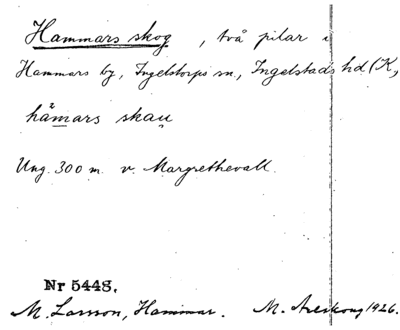 Hammars skog, två pilar i
Hammars by, Ingelstorps sn, Ingelstads hd (K,
hämars skau̯
Ung. 300 m. v. Margrethevall.
Nr 5448.
M. Larsson, Hammar. M. Areskoug 1926.